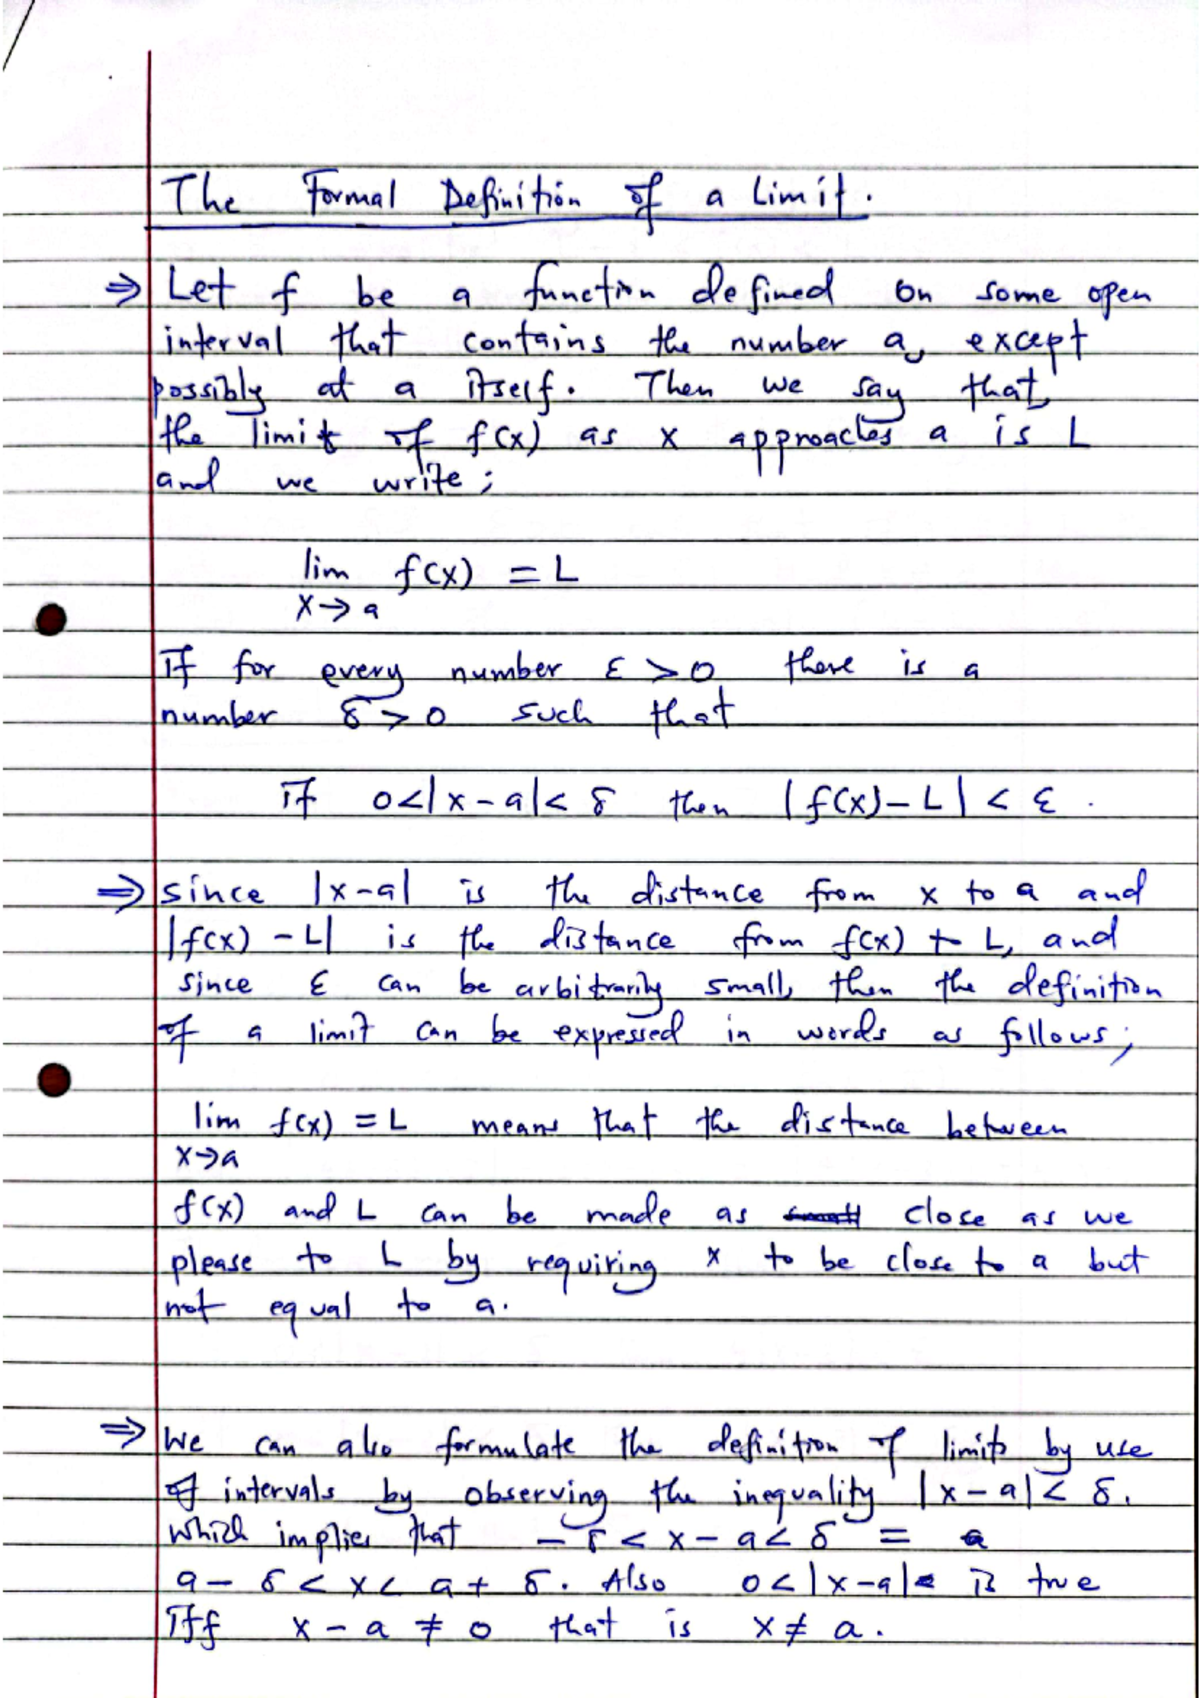 The Formal Definition of a Limit.
⇒ Let f be a function defined on some open
interval that contains the number a, except
possibly at a itself. Then we say that,
the limit of f(x) as x approaches a is L
and we write;
lim f(x) = L
x→a
if for every number ε > 0 there is a
number δ > 0 such that
if 0<|x-a|< δ then |f(x)-L| < ε.
⇒ since |x-a| is the distance from x to a and
|f(x) - L| is the distance from f(x) to L, and
since ε can be arbitrarily small, then the definition
of a limit can be expressed in words as follows;
lim f(x) = L means that the distance between
x→a
f(x) and L can be made as small close as we
please to L by requiring x to be close to a but
not equal to a.
⇒ We can also formulate the definition of limits by use
of intervals by observing the inequality |x-a|< δ.
which implies that -δ < x-a< δ = a
a-δ < x< a+ δ. Also 0<|x-a| is true
Iff x-a ≠ 0 that is x≠ a.